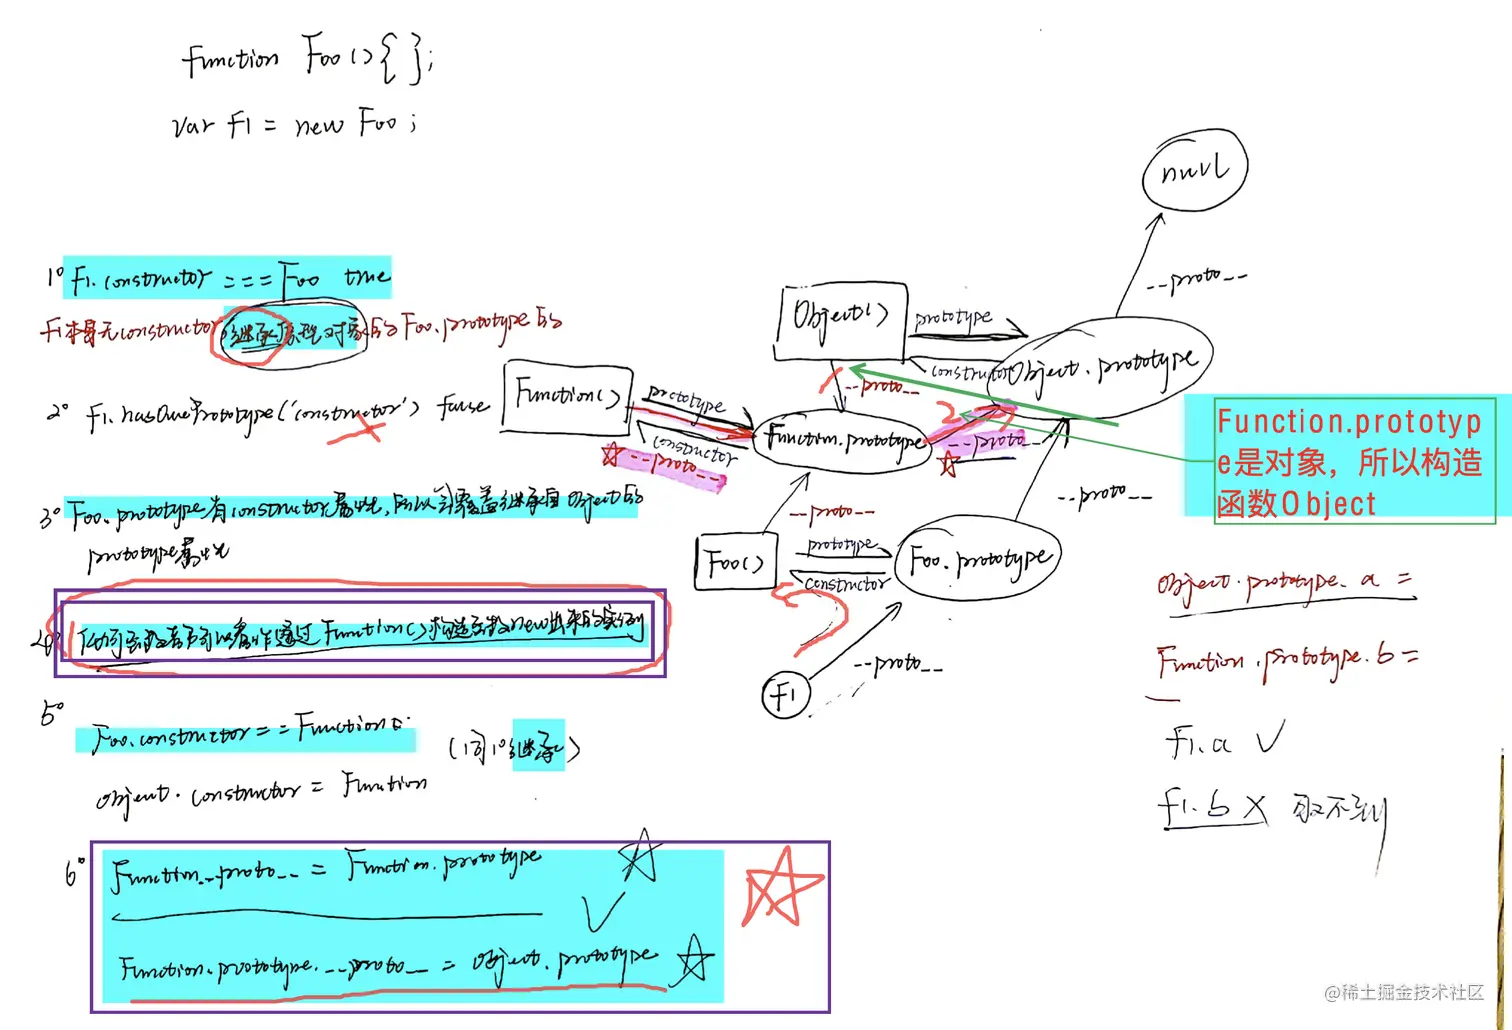 function Foo(){ };
var f1 = new Foo ;
1° f1.constructor === Foo true
f1本身无constructor 继承原型对象的 Foo.prototype的
2° f1.hasOwnPrototype('constructor') false
3° Foo.prototype有constructor属性,所以会覆盖继承自Object的
prototype属性
4° 任何函数都可以看作通过Function()构造函数new出来的实例
5°
Foo.constructor == Function
(同1°继承)
object.constructor = Function
6°
Function.__proto__ = Function.prototype
Function.prototype.__proto__ = Object.prototype
null
--proto--
Object()
prototype
constructor
Object.prototype
--proto--
Function()
prototype
constructor
--proto--
Function.prototype
2
--proto--
--proto--
--proto--
Foo()
prototype
constructor
Foo.prototype
--proto--
f1
Function.prototyp
e是对象，所以构造
函数Object
Object.prototype.a =
Function.prototype.b =
f1.a ✓
f1.b X 取不到
@稀土掘金技术社区